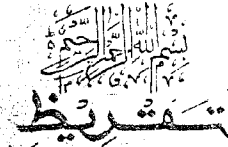 بسم الله الرحمن الرحيم
تقریظ